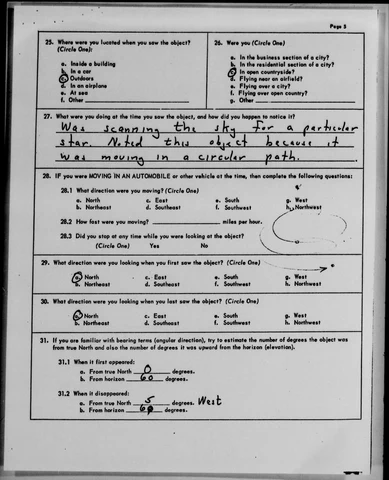 Page 3
25. Where were you located when you saw the object?
(Circle One)
a. Inside a building
b. In a car
c. Outdoors
d. In an airplane
e. At sea
f. Other
26. Were you (Circle One)
a. In the business section of a city?
b. In the residential section of a city?
c. In open countryside?
d. Flying near an airfield?
e. Flying over a city?
f. Flying over open country?
g. Other
27. What were you doing at the time you saw the object, and how did you happen to notice it?
Was scanning the sky for a particular
star. Noted this object because it
was moving in a circular path.
28. IF you were MOVING IN AN AUTOMOBILE or other vehicle at the time, then complete the following questions:
28.1 What direction were you moving? (Circle One)
a. North c. East e. South g. West
b. Northeast d. Southeast f. Southwest h. Northwest
28.2 How fast were you moving? miles per hour.
28.3 Did you stop at any time while you were looking at the object?
(Circle One) Yes No
29. What direction were you looking when you first saw the object? (Circle One)
a. North c. East e. South g. West
b. Northeast d. Southeast f. Southwest h. Northwest
30. What direction were you looking when you last saw the object? (Circle One)
a. North c. East e. South g. West
b. Northeast d. Southeast f. Southwest h. Northwest
31. If you are familiar with bearing terms (angular direction), try to estimate the number of degrees the object was
from true North and also the number of degrees it was upward from the horizon (elevation).
31.1 When it first appeared:
a. From true North 0 degrees.
b. From horizon 60 degrees.
31.2 When it disappeared:
a. From true North 5 degrees. West
b. From horizon 60 degrees.